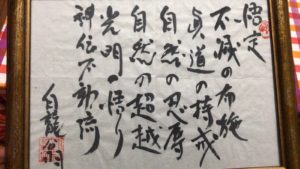 悟定
不滅の布施
真道の持戒
自然の忍辱
自然の超越
光明の悟り
神伝不動流
白龍